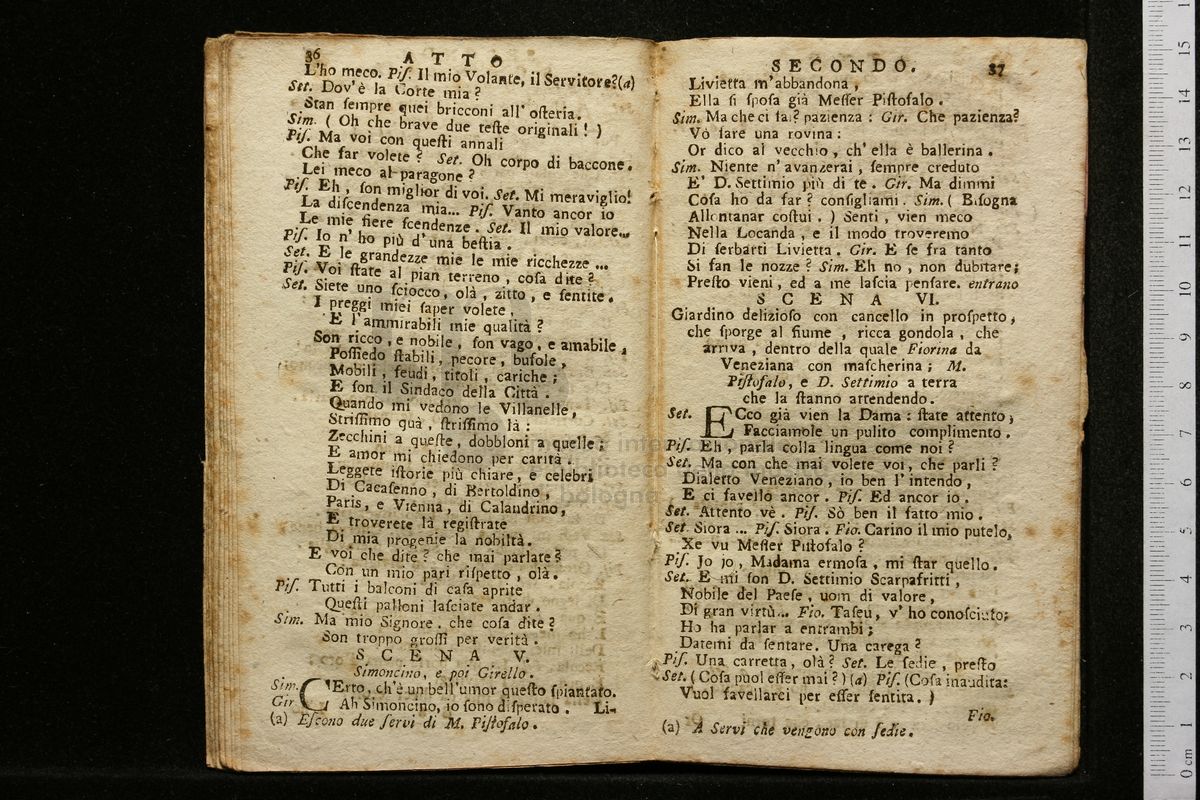 36 ATTO
L'ho meco. Piſ. Il mio Volante, il Servitore?(a)
Set. Dov'è la Corte mia?
Stan ſempre quei bricconi all' oſteria.
Sim. ( Oh che brave due teſte originali! )
Piſ. Ma voi con queſti annali
Che far volete? Set. Oh corpo di baccone.
Lei meco al paragone?
Piſ. Eh, ſon miglior di voi. Set. Mi meraviglio!
La diſcendenza mia... Piſ. Vanto ancor io
Le mie fiere ſcendenze. Set. Il mio valore...
Piſ. Io n' ho più d'una beſtia.
Set. E le grandezze mie le mie ricchezze ...
Piſ. Voi ſtate al pian terreno, coſa dite?
Set. Siete uno ſciocco, olà, zitto, e ſentite.
I preggi miei ſaper volete,
E l'ammirabili mie qualità?
Son ricco, e nobile, ſon vago, e amabile,
Poſſiedo ſtabili, pecore, buſole,
Mobili, feudi, titoli, cariche;
E ſon il Sindaco della Città.
Quando mi vedono le Villanelle,
Striſſimo quà, ſtriſſimo là:
Zecchini a queſte, dobbloni a quelle;
E amor mi chiedono per carità.
Leggete iſtorie più chiare, e celebri
Di Cacaſenno, di Bertoldino,
Paris, e Vienna, di Calandrino,
E troverete là regiſtrate
Di mia progenie la nobiltà.
E voi che dite? che mai parlate?
Con un mio pari riſpetto, olà.
Piſ. Tutti i balconi di caſa aprite
Queſti palloni laſciate andar.
Sim. Ma mio Signore. che coſa dite?
Son troppo groſſi per verità.
SCENA V.
Simoncino, e poi Girello.
Sim. CErto, ch'è un bell'umor queſto ſpiantato.
Gir Ah Simoncino, io ſono diſperato. Li-
(a) Eſcono due ſervi di M. Piſtofalo.
SECONDO. 37
Livietta m'abbandona,
Ella ſi ſpoſa già Meſſer Piſtofalo.
Sim. Ma che ci fai? pazienza: Gir. Che pazienza?
Vò fare una rovina:
Or dico al vecchio, ch'ella è ballerina.
Sim. Niente n'avanzerai, ſempre creduto
E' D. Settimio più di te. Gir. Ma dimmi
Coſa ho da far? conſigliami. Sim. ( Biſogna
Allontanar coſtui. ) Senti, vien meco
Nella Locanda, e il modo troveremo
Di ſerbarti Livietta. Gir. E ſe fra tanto
Si fan le nozze? Sim. Eh no, non dubitare;
Preſto vieni, ed a me laſcia penſare. entrano
SCENA VI.
Giardino delizioſo con cancello in proſpetto,
che ſporge al fiume, ricca gondola, che
arriva, dentro della quale Fiorina da
Veneziana con maſcherina; M.
Piſtofalo, e D. Settimio a terra
che la ſtanno attendendo.
Set. ECco già vien la Dama: ſtate attento,
Facciamole un pulito complimento.
Piſ. Eh, parla colla lingua come noi?
Set. Ma con che mai volete voi, che parli?
Dialetto Veneziano, io ben l'intendo,
E ci favello ancor. Piſ. Ed ancor io.
Set. Attento vè. Piſ. Sò ben il fatto mio.
Set. Siora ... Piſ. Siora. Fio. Carino il mio putelo,
Xe vu Meſſer Piſtofalo?
Piſ. Jo jo, Madama ermoſa, mi ſtar quello.
Set. E mi ſon D. Settimio Scarpafritti,
Nobile del Paeſe, uom di valore,
Di gran virtù... Fio. Taſeu, v'ho conoſciuto;
Ho ha parlar a entrambi;
Datemi da ſentare. Una carega?
Piſ. Una carretta, olà? Set. Le ſedie, preſto
Set. ( Coſa puol eſſer mai? ) (a) Piſ. (Coſa inaudita:
Vuol favellarci per eſſer ſentita. )
Fio.
(a) A Servi che vengono con ſedie.